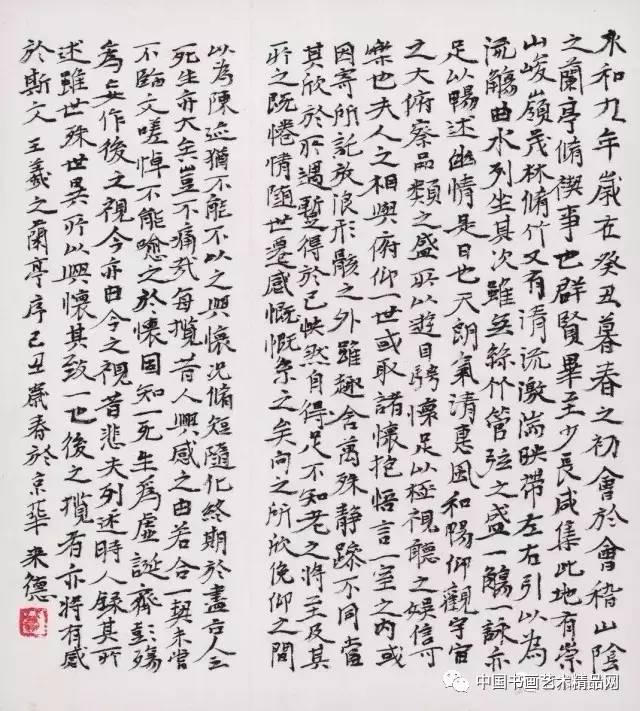 永和九年歲在癸丑暮春之初會於會稽山陰
之蘭亭脩禊事也群賢畢至少長咸集此地有崇
山峻嶺茂林脩竹又有清流激湍映帶左右引以為
流觴曲水列坐其次雖無絲竹管弦之盛一觴一詠亦
足以暢述幽情是日也天朗氣清惠風和暢仰觀宇宙
之大俯察品類之盛所以遊目騁懷足以極視聽之娛信可
樂也夫人之相與俯仰一世或取諸懷抱悟言一室之內或
因寄所託放浪形骸之外雖趣舍萬殊靜躁不同當
其欣於所遇暫得於己怏然自得足不知老之將至及其
所之既惓情隨世遷感慨慨係之矣向之所欣俛仰之間
以為陳迹猶不能不以之興懷況脩短隨化終期於盡古人云
死生亦大矣豈不痛哉每攬昔人興感之由若合一契未嘗
不臨文嗟悼不能喻之於懷固知一死生為虛誕齊彭殤
為妄作後之視今亦由今之視昔悲夫列述時人錄其所
述雖世殊世異所以興懷其致一也後之攬者亦將有感
於斯文 王羲之蘭亭序己丑歲春於京華 来德
中国书画艺术精品网